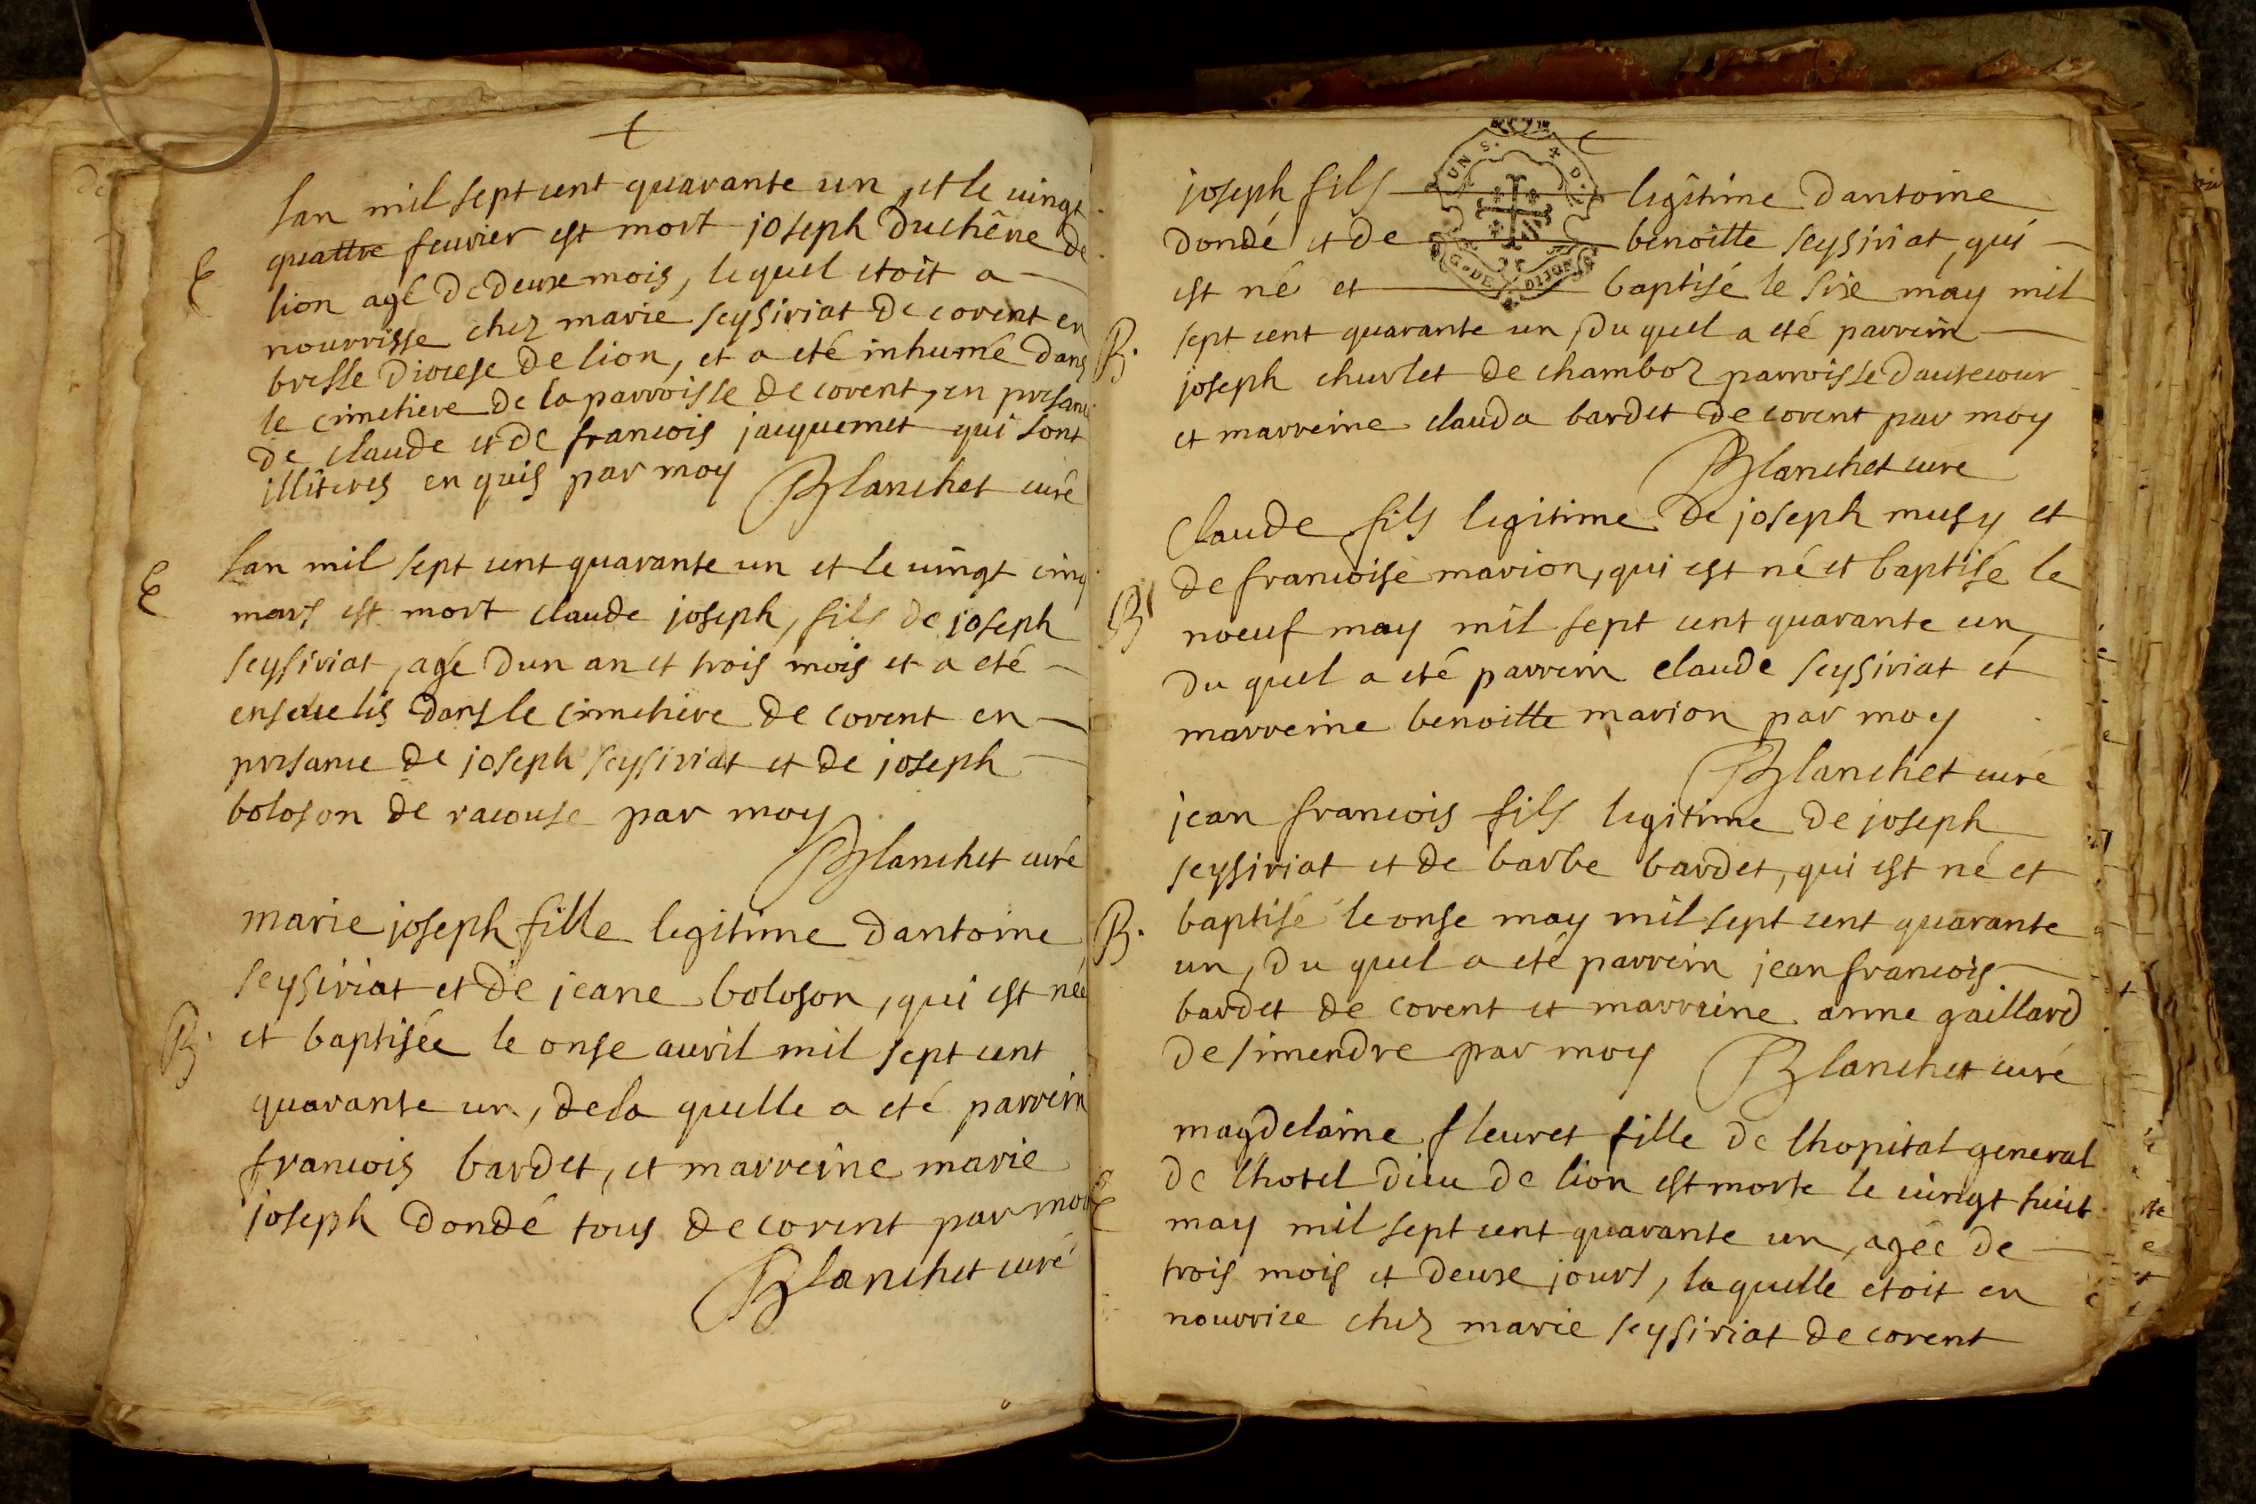 lan mil sept cent quarante un, et le vingt
quattre fevrier est mort joseph Duchêne de
E
lion agé de deuxe mois, lequel etoit a
nourrisse chez marie seysiriat de corent en
bresse diocese de lion, et a eté inhumé dans
le cimetiere de la parroisse de corent, en presance
de claude et de francois jacquemet qui sont
illiteres enquis par moy Blanchet curé
E
lan mil sept cent quarante un et le vingt cinq
mars est mort claude joseph, fils de joseph
seysiriat, agé dun an et trois mois et a eté
ensevelis dans le cimetiere de corent en
presance de joseph seysiriat et de joseph
boloson de racouse par moy
Blanchet curé
marie joseph fille legitime dantoine
seysiriat et de jeane boloson, qui est née
B.
et baptisée le onse avril mil sept cent
quarante un, de la quelle a eté parrein
francois bardet, et marreine marie
joseph dondé tous de corent par moy
Blanchet curé
UN S. D.
G. DE DIJON
joseph fils legitime dantoine
dondé et de benoitte seysiriat, qui
est né et baptisé le sixe may mil
B.
sept cent quarante un, du quel a eté parrein
joseph churlet de chamboz parroisse dautecour
et marreine clauda bardet de corent par moy
Blanchet cure
claude fils legitime de joseph musy et
de francoise marion, qui est né et baptisé le
B
noeuf may mil sept cent quarante un,
du quel a eté parrein claude seysiriat et
marreine benoitte marion par moy
Blanchet curé
jean francois fils legitime de joseph
seysiriat et de barbe bardet, qui est né et
B.
baptisé le onse may mil sept cent quarante
un, du quel a eté parrein jean francois
bardet de corent et marreine anne gaillard
de simendre par moy Blanchet curé
magdelaine fleuret fille de lhopital general
E
de lhotel dieu de lion est morte le vingt huit
may mil sept cent quarante un, agée de
trois mois et deuxe jours, la quelle etoit en
nourrice chez marie seysiriat de corent